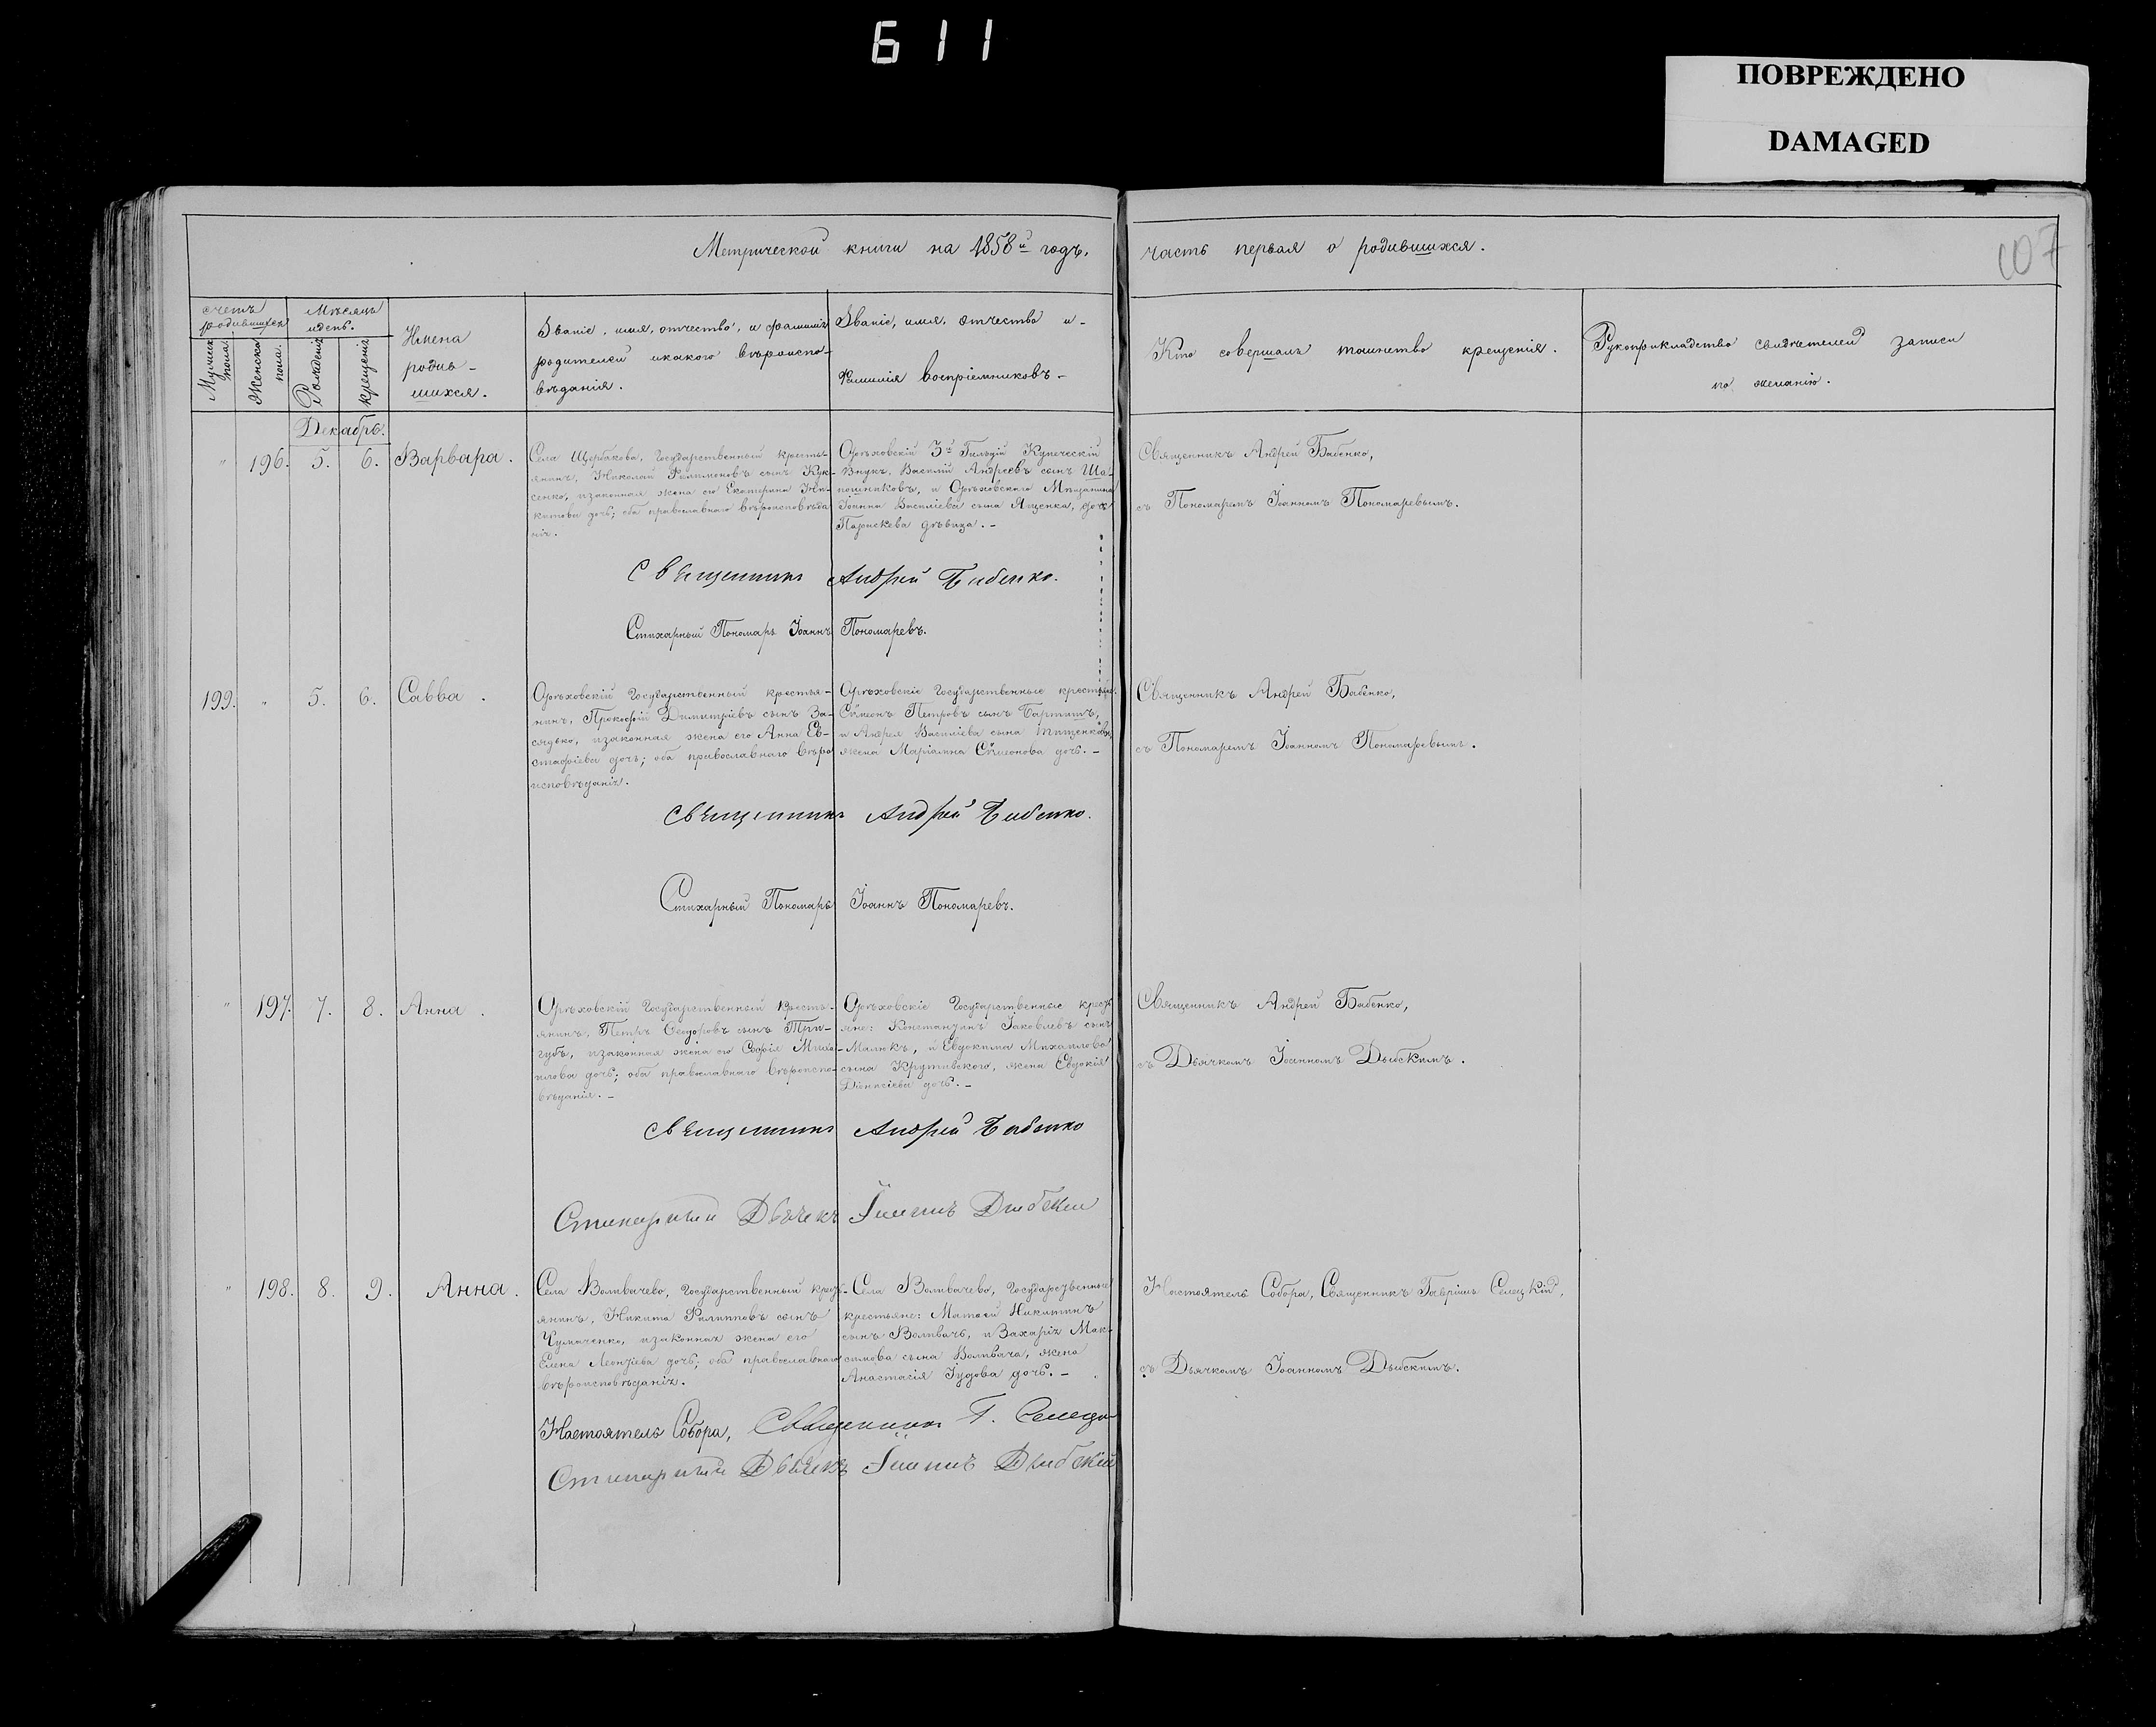 611
ПОВРЕЖДЕНО
DAMAGED
Метрической книги на 1858й годъ,
часть первая о родившихся.
107
счетъ родившихся
Мѣсяцъ и день.
Мужеска пола.
Женска пола.
Рожденія
крещенія
Имена
родив-
шихся.
Званіе, имя, отчество, и фамилія
родителей и какого вѣроиспо-
вѣданія.
Званіе, имя, отчество и
фамилія воспріемниковъ
Кто совершалъ таинство крещенія.
Рукоприкладство свидѣтелей записи
по желанію.
Декабрь.
" 196. 5. 6. Варвара.
Села Щербакова, Государственный кресть-
янинъ, Николай Филимоновъ сынъ Кук-
сенко, и законная жена его Екатерина Ни-
китова дочь; оба православнаго вѣроисповѣда
нія.
Орѣховскій 3й Гильдіи Купеческій
Внукъ, Василій Андреевъ сынъ Ша-
пошниковъ, и Орѣховскаго Мѣщанина
Іоанна Василіева сына Ященка, дочь
Параскева дѣвица.
Священникъ Андрей Бабенко,
съ Пономаремъ Іоанномъ Пономаревымъ.
Священникъ Андрей Бабенко.
Стихарный Пономарь Іоаннъ Пономаревъ.
199. " 5. 6. Савва.
Орѣховскій Государственный крестья-
нинъ, Прокофій Димитріевъ сынъ За-
сядько, и законная жена его Анна Ев-
стафіева дочь; оба православнаго вѣро
исповѣданія.
Орѣховскіе Государственные крестьяне:
Сѵмеонъ Петровъ сынъ
и Андрея Василіева сына Тищенкова,
жена Маріамна Сѵмеонова дочь.
Священникъ Андрей Бабенко,
съ Пономаремъ Іоанномъ Пономаревымъ.
Священникъ Андрей Бабенко.
Стихарный Пономарь Іоаннъ Пономаревъ.
" 197. 7. 8. Анна.
Орѣховскій Государственный кресть-
янинъ, Петръ Ѳеодоровъ сынъ Три-
губъ, и законная жена его Софія Миха-
илова дочь; оба православнаго вѣроиспо-
вѣданія.
Орѣховскіе Государственные кресть
яне: Константинъ Іаковлевъ сынъ
Малюкъ, и Евдокима Михаилова
сына Крутивского, жена Евдокія
Діонисіева дочь.
Священникъ Андрей Бабенко,
съ Дьячкомъ Іоанномъ Дыбскимъ.
Священникъ Андрей Бабенко
Стихарный Дьячекъ Іоаннъ Дыбский
" 198. 8. 9. Анна.
Села Воливачево, Государственный крест-
янинъ, Никита Филипповъ сынъ
Чумаченко, и законная жена его
Елена Леонтіева дочь; оба православнаго
вѣроисповѣданія.
Села Воливачево, Государственные
крестьяне: Матвей Никитинъ
сынъ Воливачъ, и Захарія Мак-
симова сына Воливача, жена
Анастасія Іудова дочь.
Настоятель Собора, Священникъ Гавріилъ Селецкій,
съ Дьячкомъ Іоанномъ Дыбскимъ.
Настоятель Собора, Священникъ Г. Селецк
Стихарный Дьячекъ Іоаннъ Дыбскій